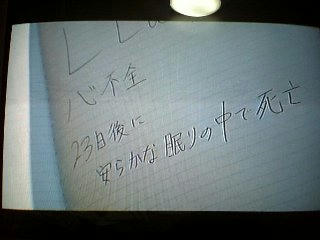 心不全
23日後に
安らかな眠りの中で死亡